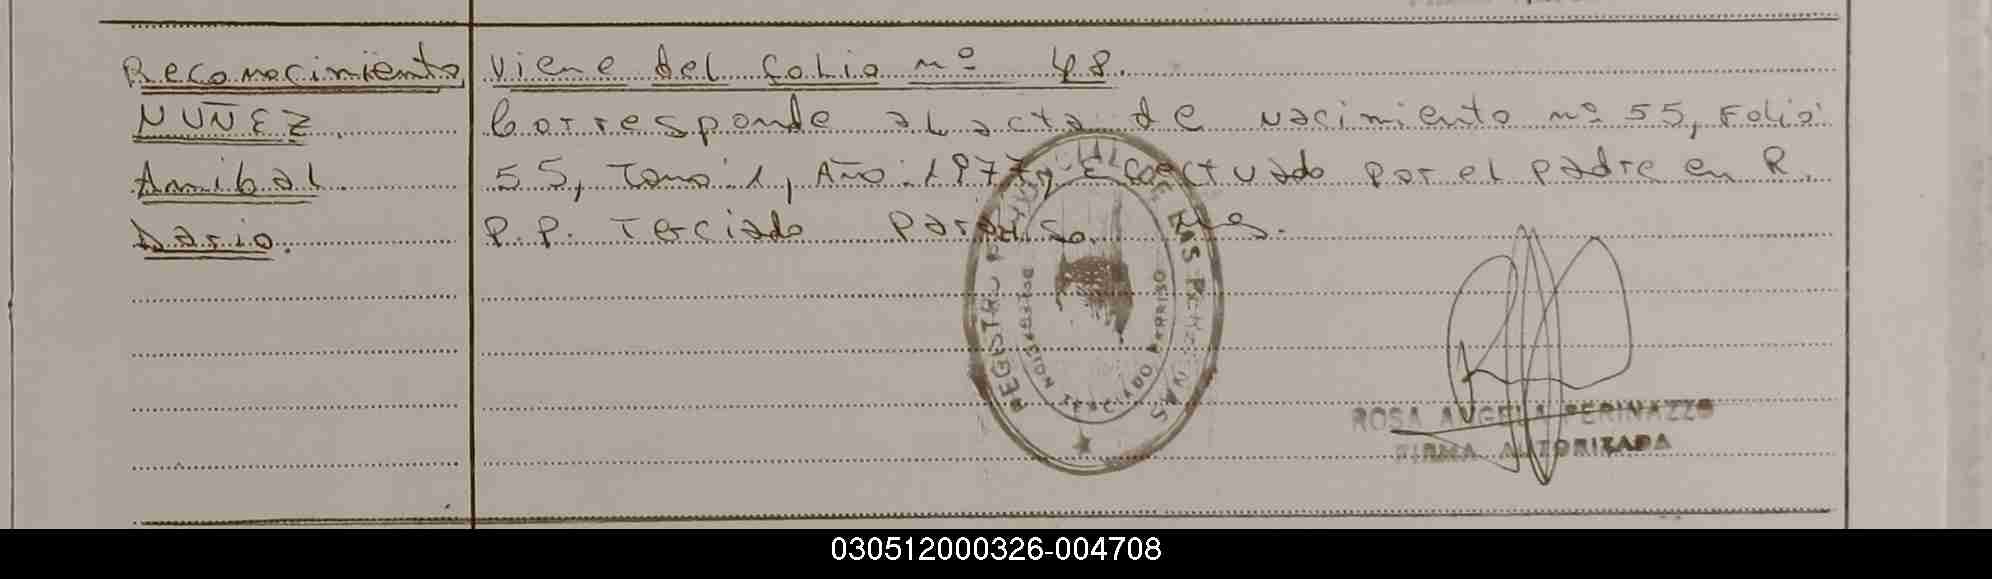 Reconocimiento
NUÑEZ.
Anibal
Dario.
Viene del folio nº 48.
Corresponde al acta de nacimiento nº 55, Folio:
55, Tomo:1, Año:1977, Efectuado por el padre en R.
P.P. Terciado Paraiso.
REGISTRO PROVINCIAL DE LAS PERSONAS
TERCIADO PARAISO
ROSA ANGELA PERINAZZO
FIRMA AUTORIZADA
030512000326-004708